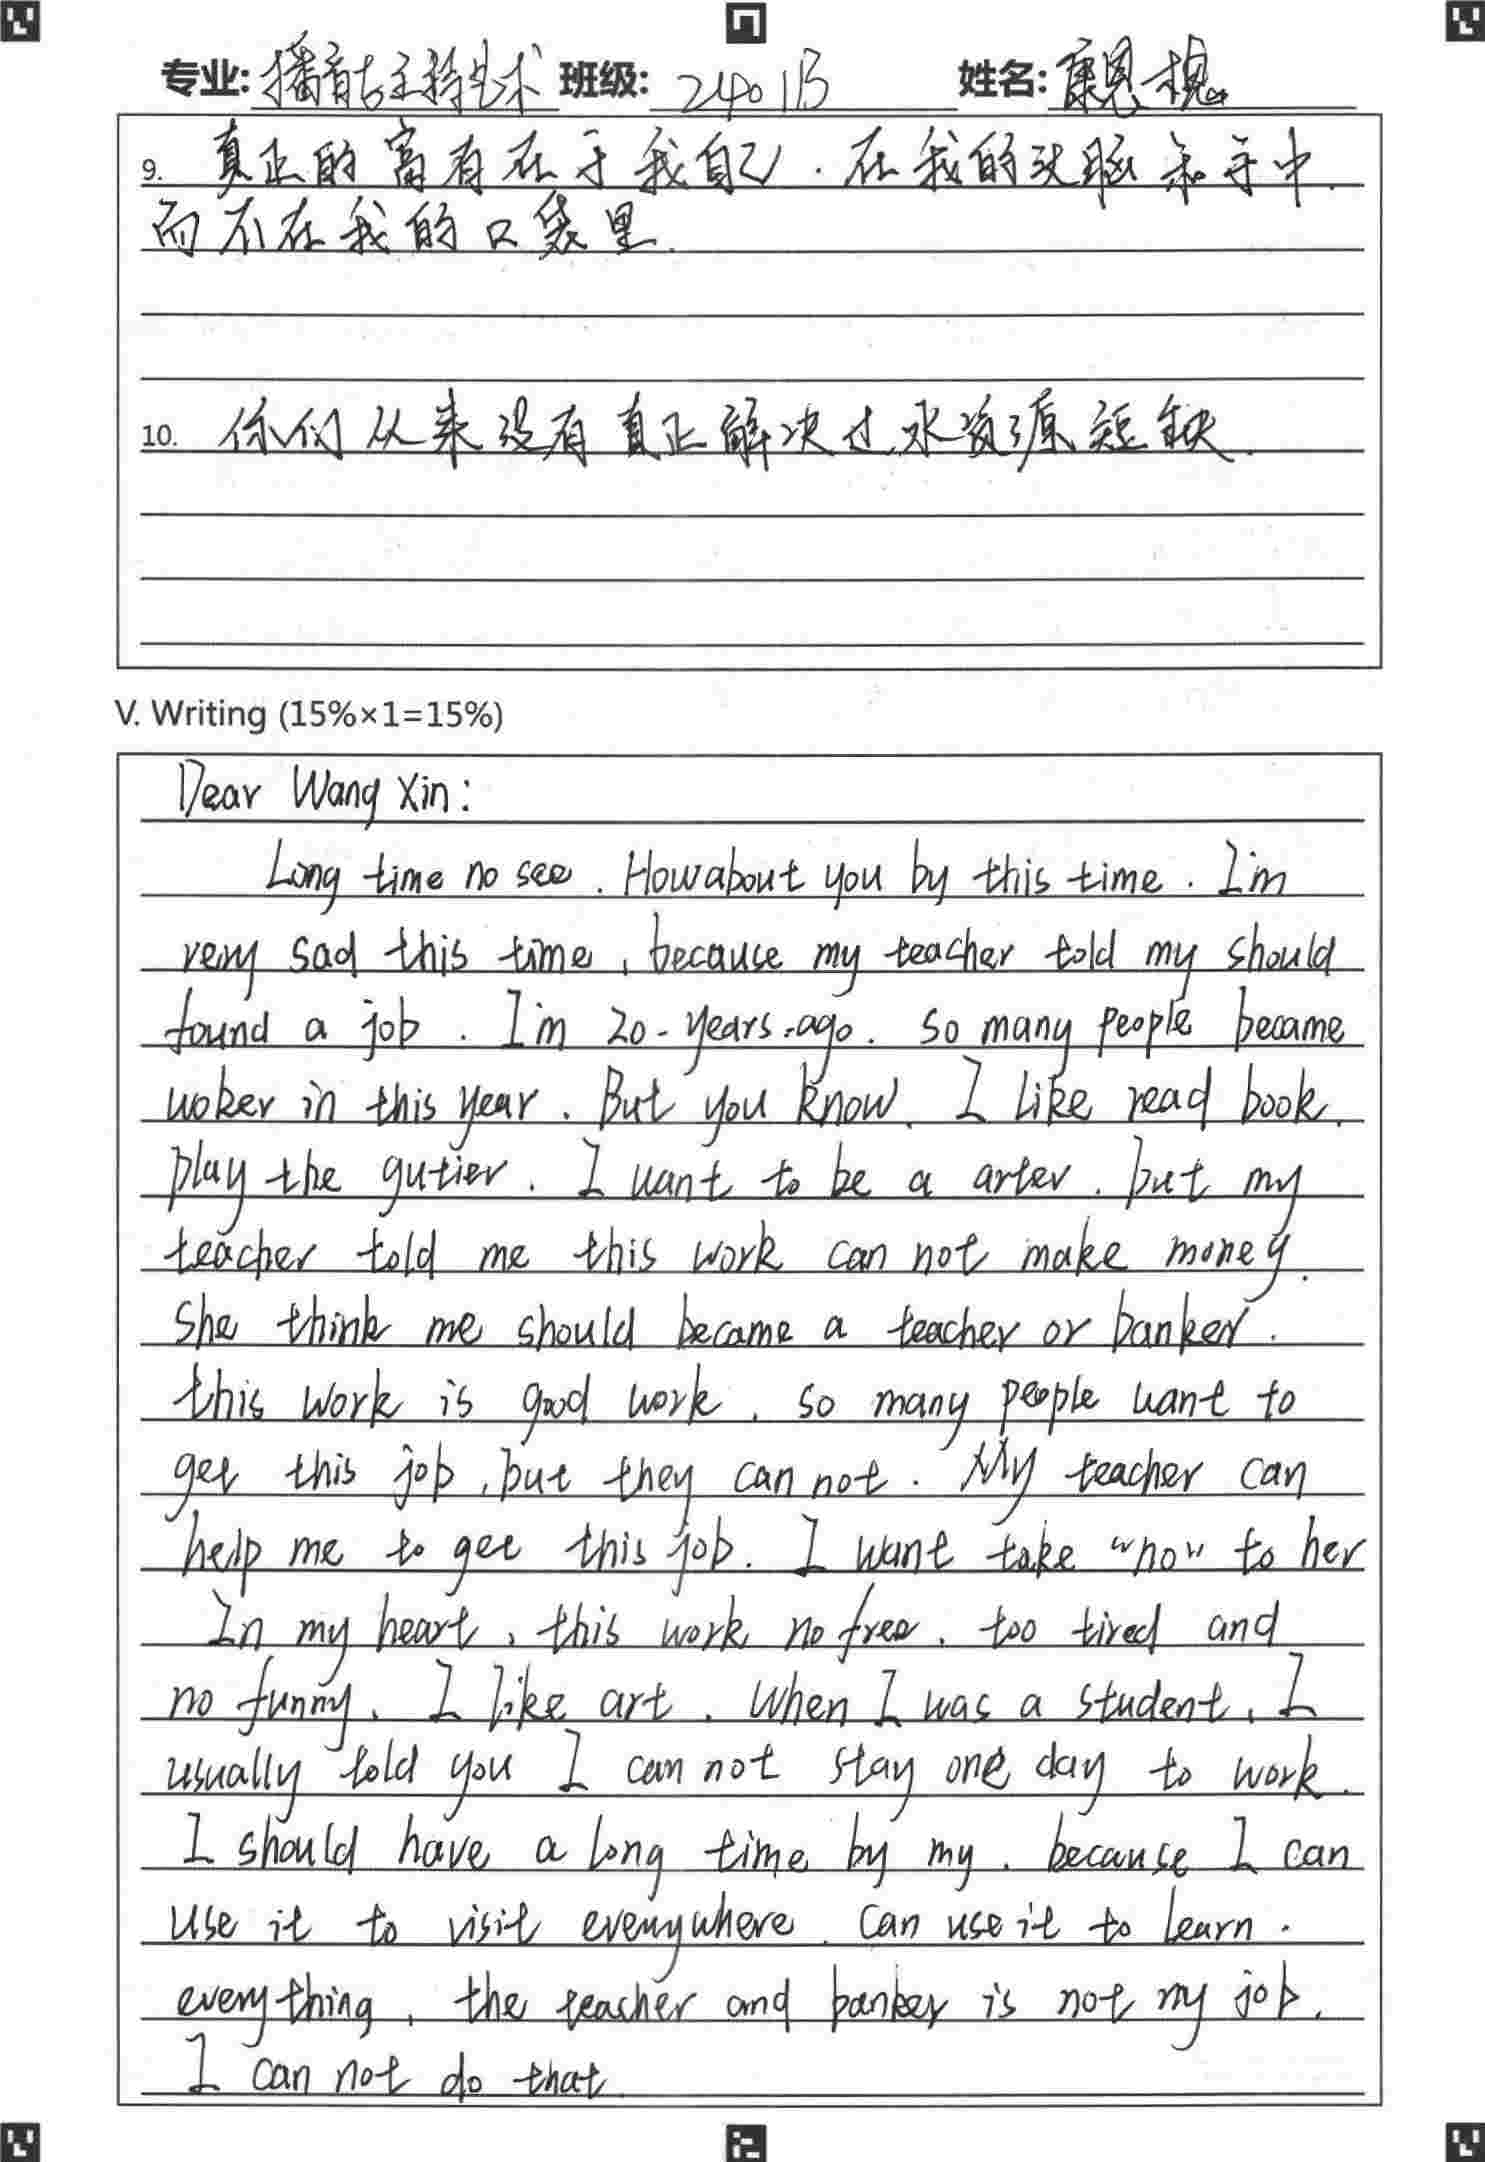 专业: 播音与主持艺术 班级: 2401B 姓名: 康恩槐
9. 真正的富有在于我自己.在我的头脑和手中.
而不在我的口袋里.
10. 你们从来没有真正解决过水资源短缺.
V. Writing (15%×1=15%)
Dear Wang Xin:
Long time no see. How about you by this time. I'm
very sad this time, because my teacher told my should
found a job. I'm 20-years-ago. so many people became
woker in this year. But you know. I like read book.
play the gutier. I want to be a arter. but my
teacher told me this work can not make money.
She think me should became a teacher or banker.
this work is good work. so many people want to
get this job, but they can not. My teacher can
help me to get this job. I want take "no" to her
In my heart, this work no free. too tired and
no funny. I like art. When I was a student, I
usually told you I can not stay one day to work.
I should have a long time by my. because I can
use it to visit everywhere. Can use it to learn.
everything, the teacher and banker is not my job.
I can not do that.